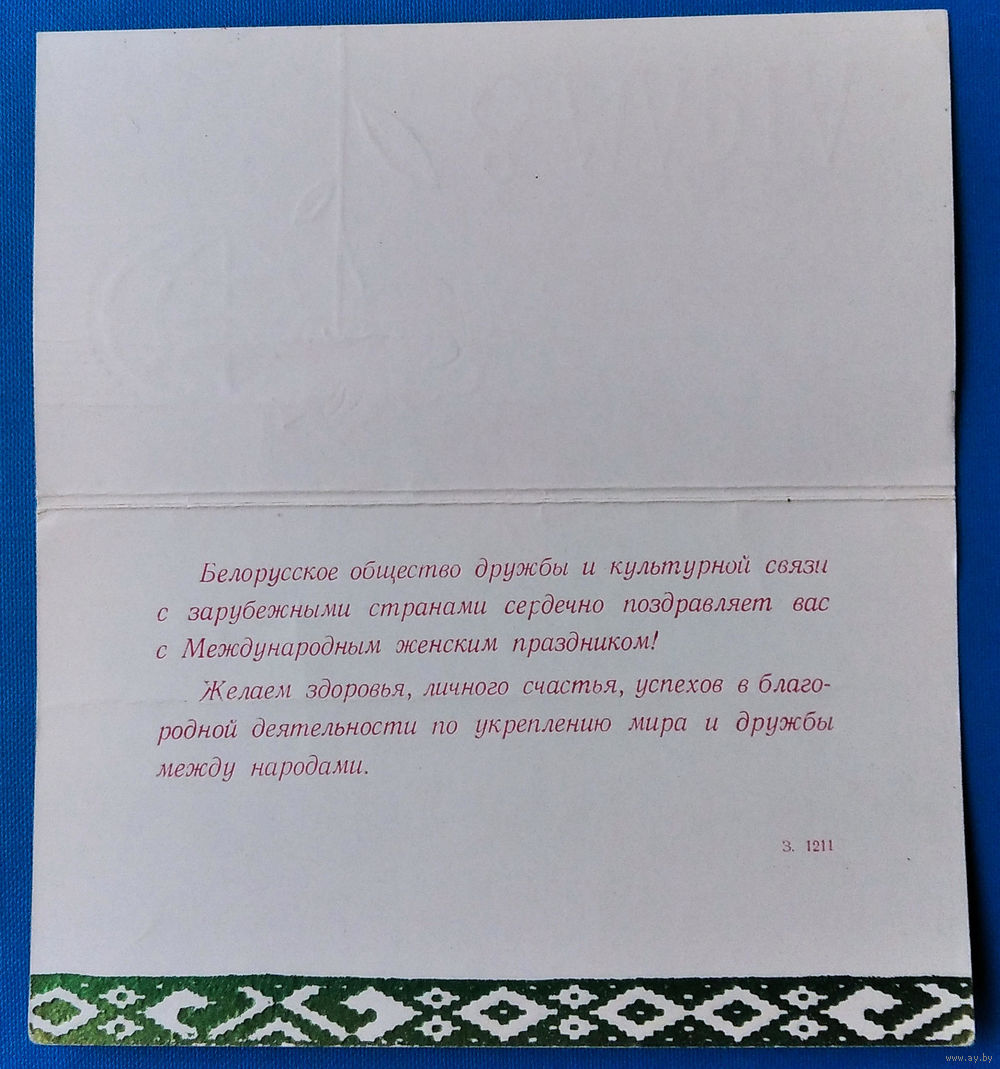 Белорусское общество дружбы и культурной связи
с зарубежными странами сердечно поздравляет вас
с Международным женским праздником!
Желаем здоровья, личного счастья, успехов в благо-
родной деятельности по укреплению мира и дружбы
между народами.
З. 1211
www.ay.by